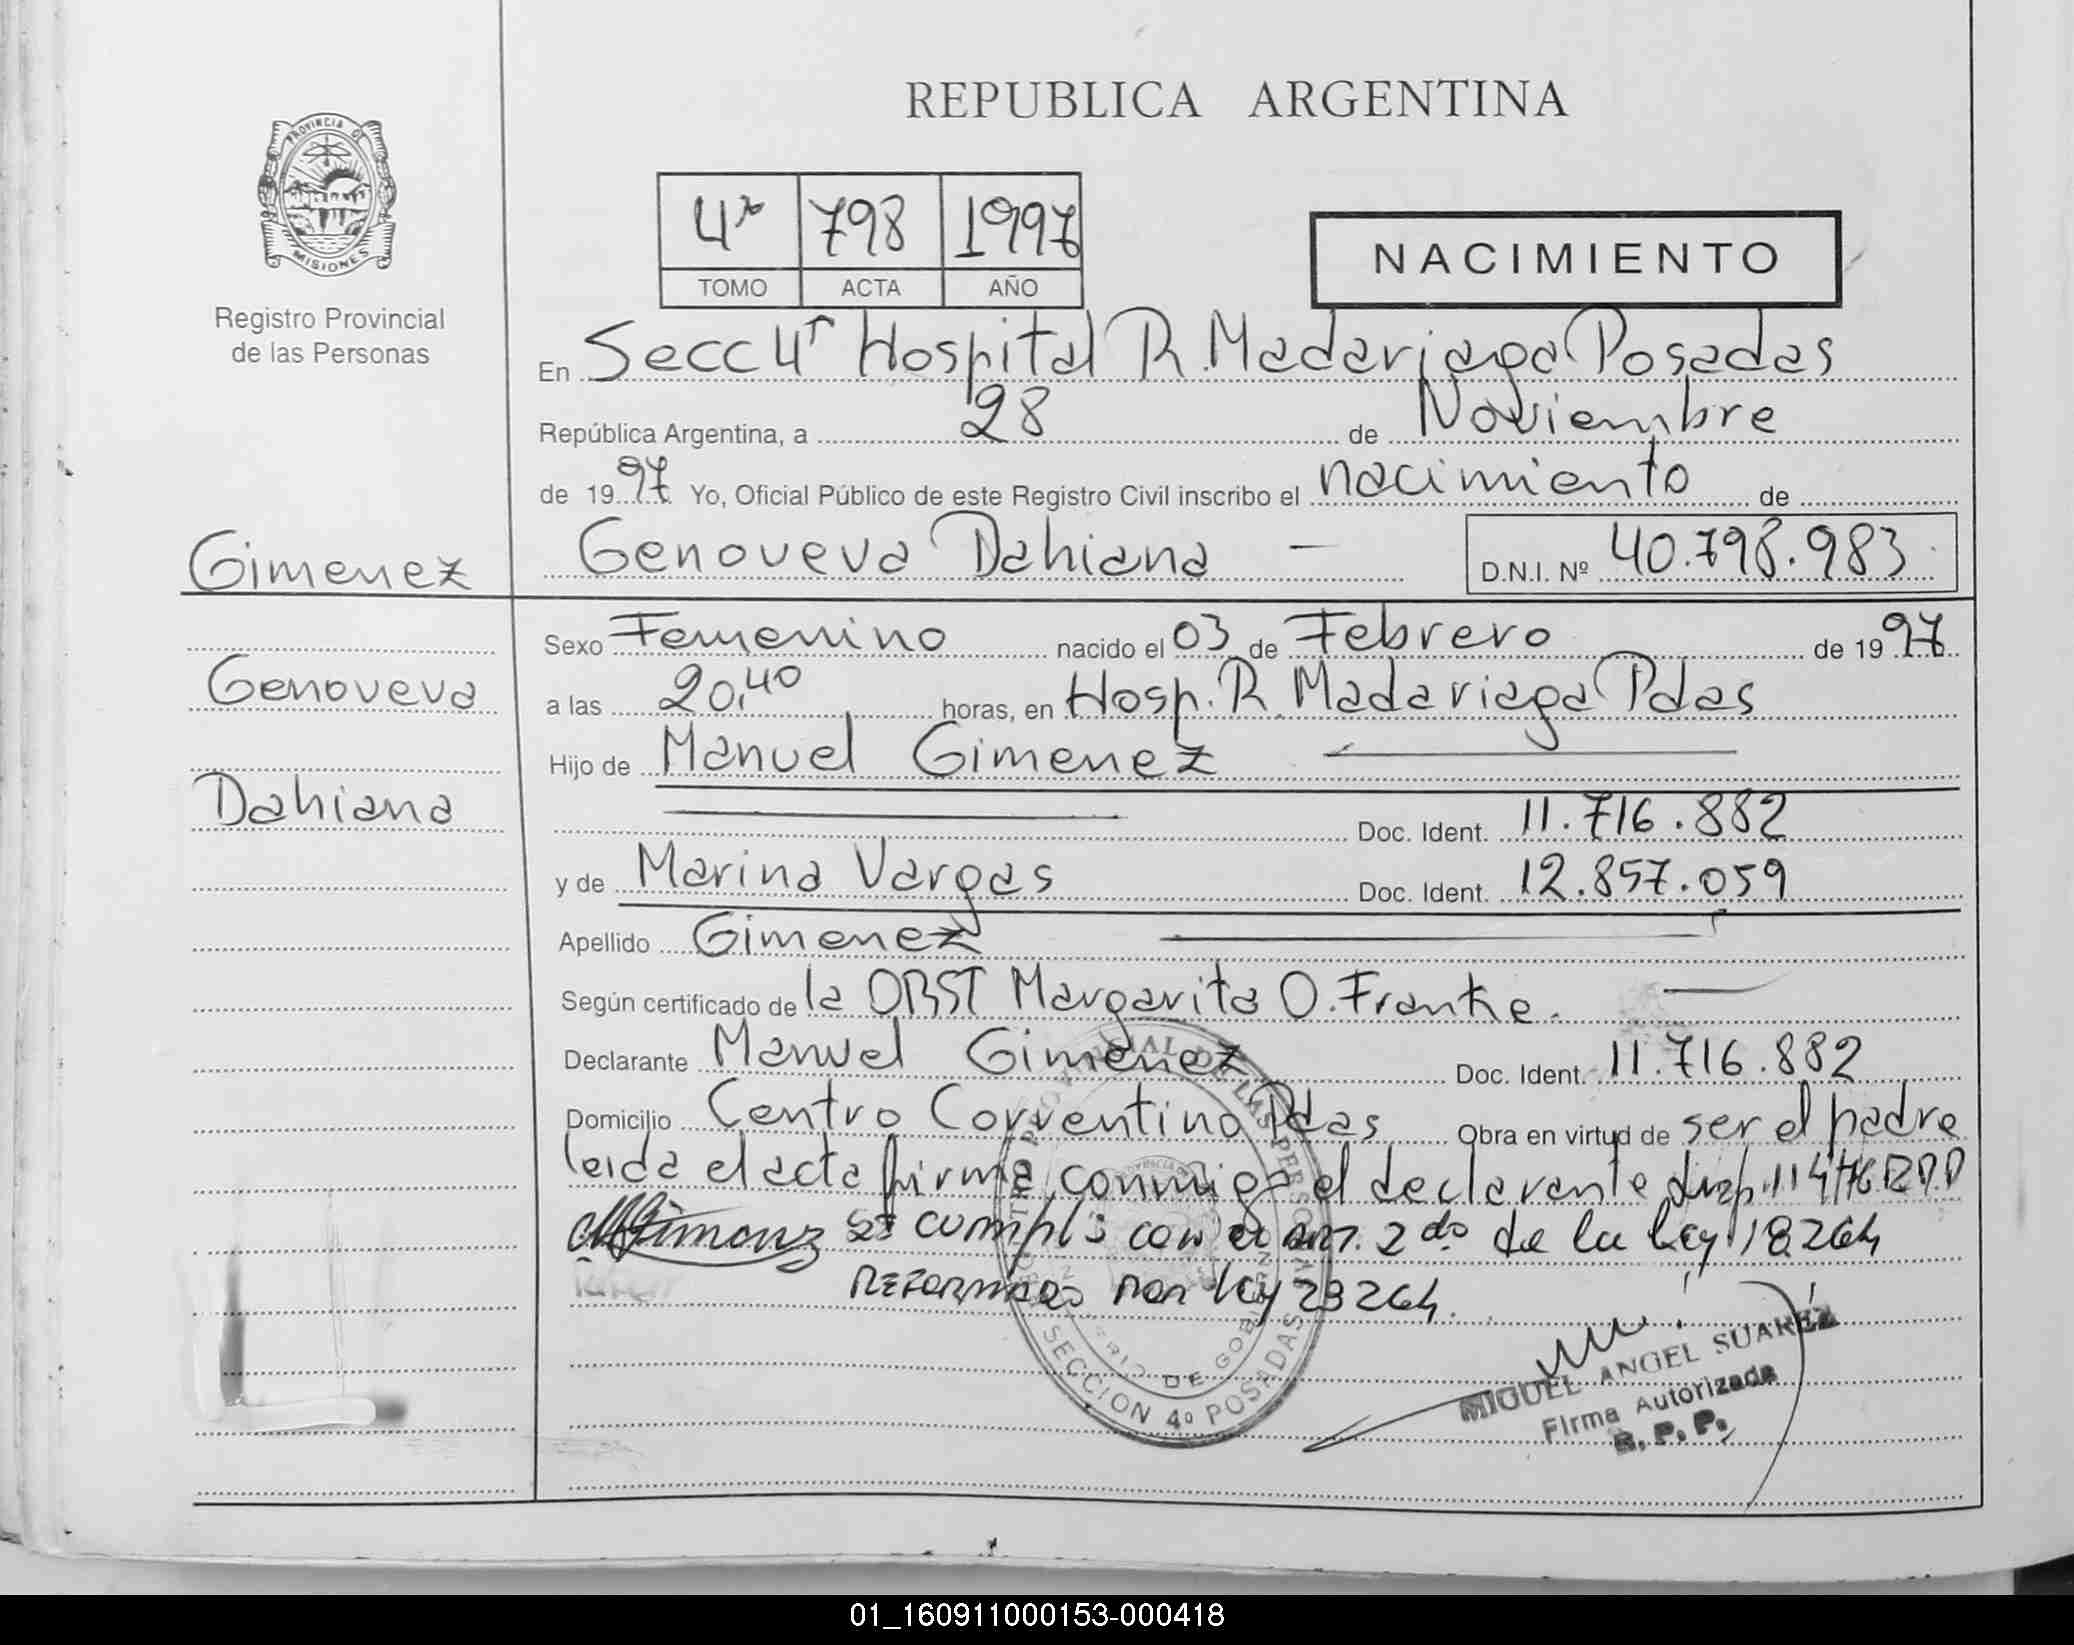 REPUBLICA ARGENTINA
PROVINCIA DE
MISIONES
Registro Provincial
de las Personas
4º 798 1997
TOMO ACTA AÑO
NACIMIENTO
En Secc 4ª Hospital R. Madariaga Posadas
República Argentina, a 28 de Noviembre
de 1997 Yo, Oficial Público de este Registro Civil inscribo el nacimiento de
Gimenez
Genoveva Dahiana — D.N.I. Nº 40.798.983
Sexo Femenino nacido el 03 de Febrero de 1997
Genoveva
a las 20,40 horas, en Hosp. R. Madariaga Pdas
Hijo de Manuel Gimenez
Dahiana
Doc. Ident. 11.716.882
y de Marina Vargas Doc. Ident. 12.857.059
Apellido Gimenez
Según certificado de la OBST Margarita O. Franke.
Declarante Manuel Gimenez Doc. Ident. 11.716.882
Domicilio Centro Correntino Pdas Obra en virtud de ser el padre
leida el acta firma conmigo el declarante disp. 114/76 R.P.P
MGimenez se cumpli con el art. 2do de la ley 18264
REFORMADO por ley 23264.
SECCION 4º POSADAS
MIGUEL ANGEL SUAREZ
Firma Autorizada
R. P. P.
01_160911000153-000418